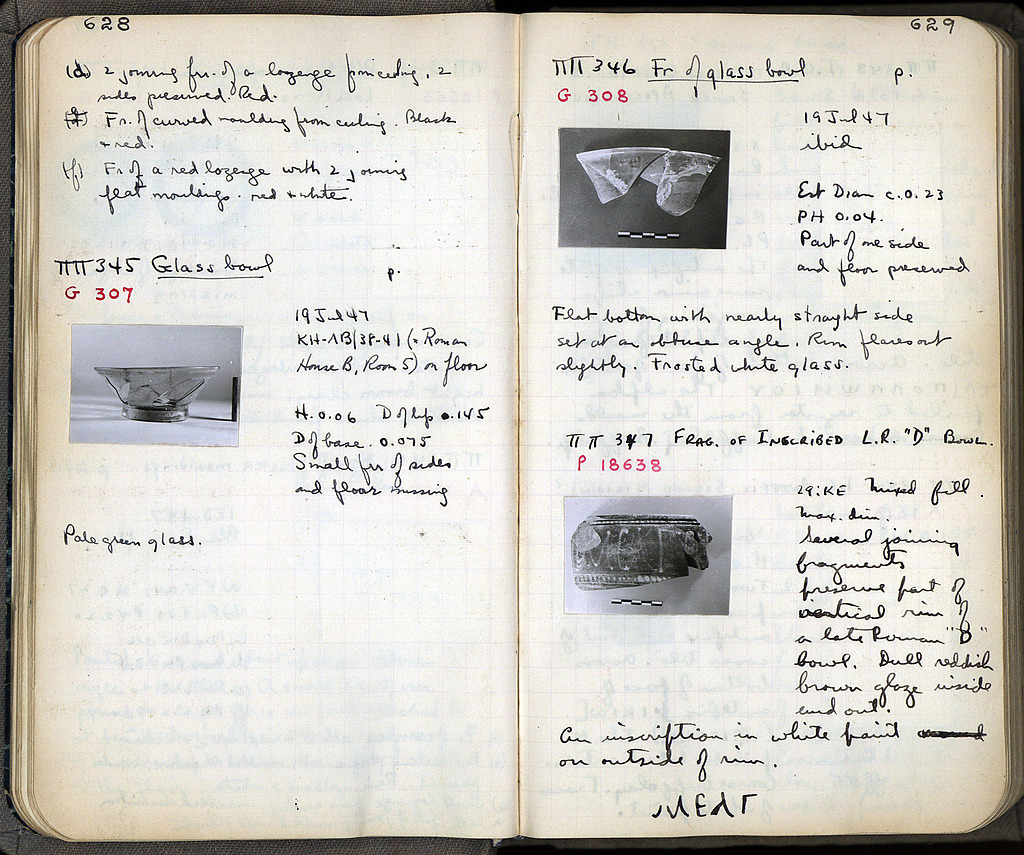 628
(d) 2 joining frr. of a lozenge from ceiling, 2
sides preserved. Red.
Fr. of curved moulding from ceiling. Black
+ red.
(f) Fr. of a red lozenge with 2 joining
flat mouldings. red + white.
ΠΠ 345 Glass bowl p.
G 307
19 Jul 47
KH-ΛB/38-41 (= Roman
House B, Room 5) on floor
H. 0.06 D of lip 0.145
D of base. 0.075
Small frr. of sides
and floor missing
Pale green glass.
629
ΠΠ 346 Fr. of glass bowl p.
G 308
19 Jul 47
ibid
Est Diam c. 0.23
PH 0.04.
Part of one side
and floor preserved
Flat bottom with nearly straight side
set at an obtuse angle. Rim flares out
slightly. Frosted white glass.
ΠΠ 347 FRAG. OF INSCRIBED L.R. "D" BOWL.
P 18638
29:KE Mixed fill.
Max. dim.
Several joining
fragments
preserve part of
vertical rim of
a late Roman "D"
bowl. Dull reddish
brown glaze inside
and out.
An inscription in white paint
on outside of rim.